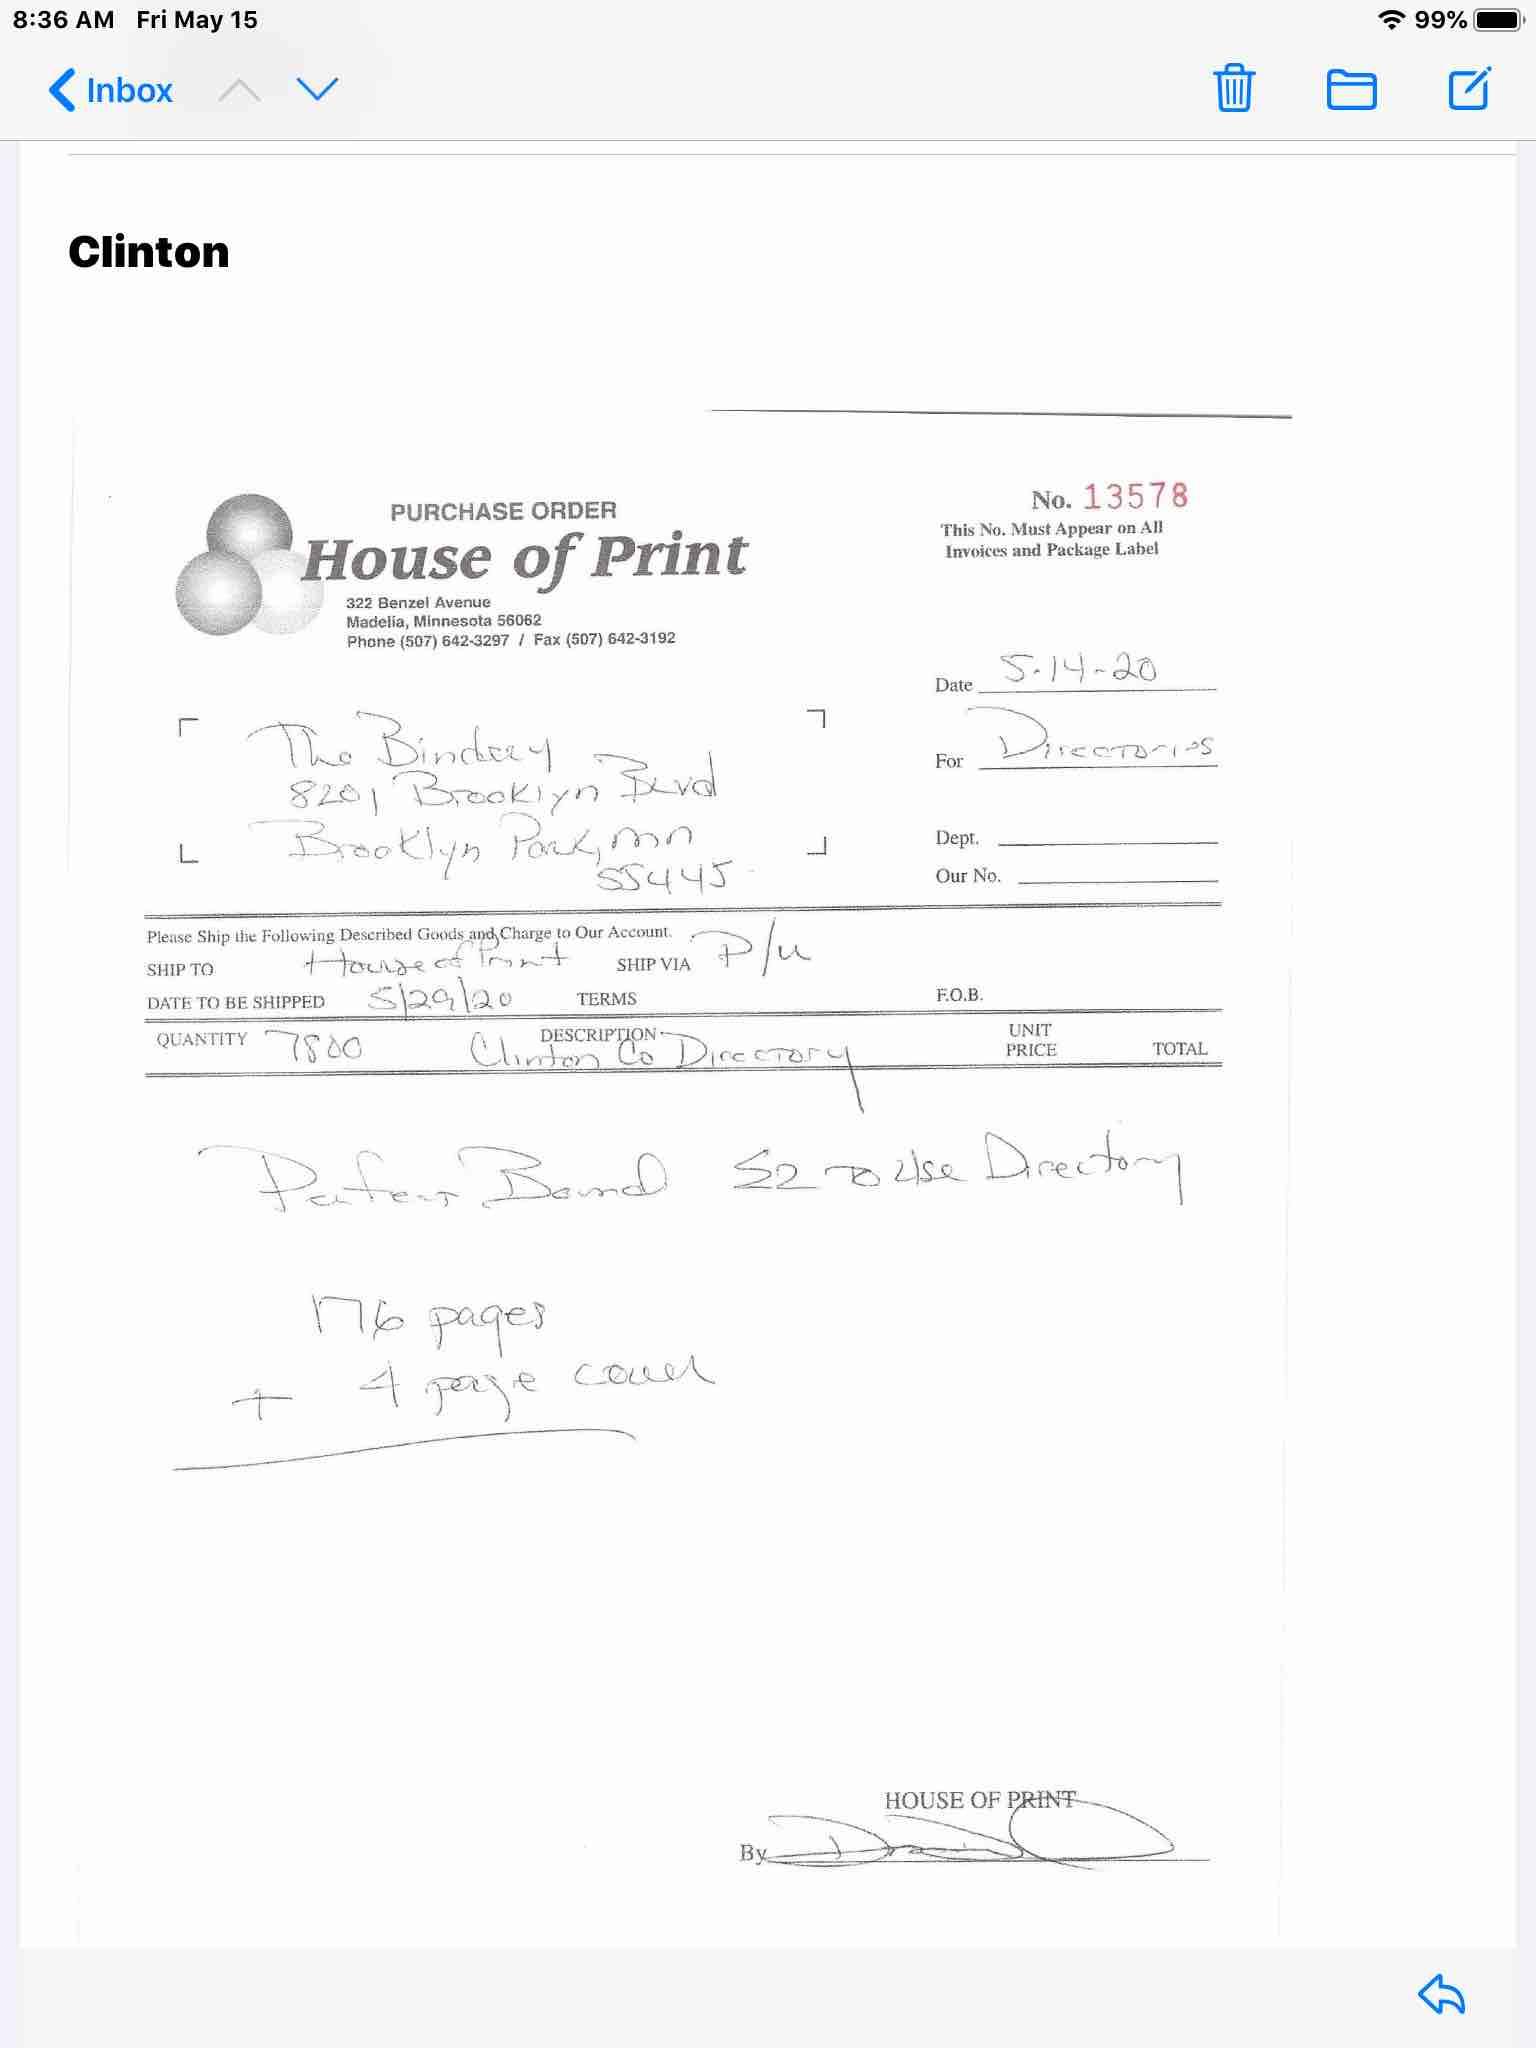 8:36 AM Fri May 15 99%
Inbox
Clinton
No. 13578
This No. Must Appear on All
Invoices and Package Label
PURCHASE ORDER
House of Print
322 Benzel Avenue
Madelia, Minnesota 56062
Phone (507) 642-3297 / Fax (507) 642-3192
Date 5-14-20
For Directories
Dept.
Our No.
The Bindery
8201 Brooklyn Blvd
Brooklyn Park, mn
55445
Please Ship the Following Described Goods and Charge to Our Account.
SHIP TO House of Print SHIP VIA P/u
DATE TO BE SHIPPED 5/29/20 TERMS F.O.B.
QUANTITY 7800 DESCRIPTION Clinton Co Directory UNIT PRICE TOTAL
Perfect Bound EZ to Use Directory
176 pages
+ 4 page cover
HOUSE OF PRINT
By